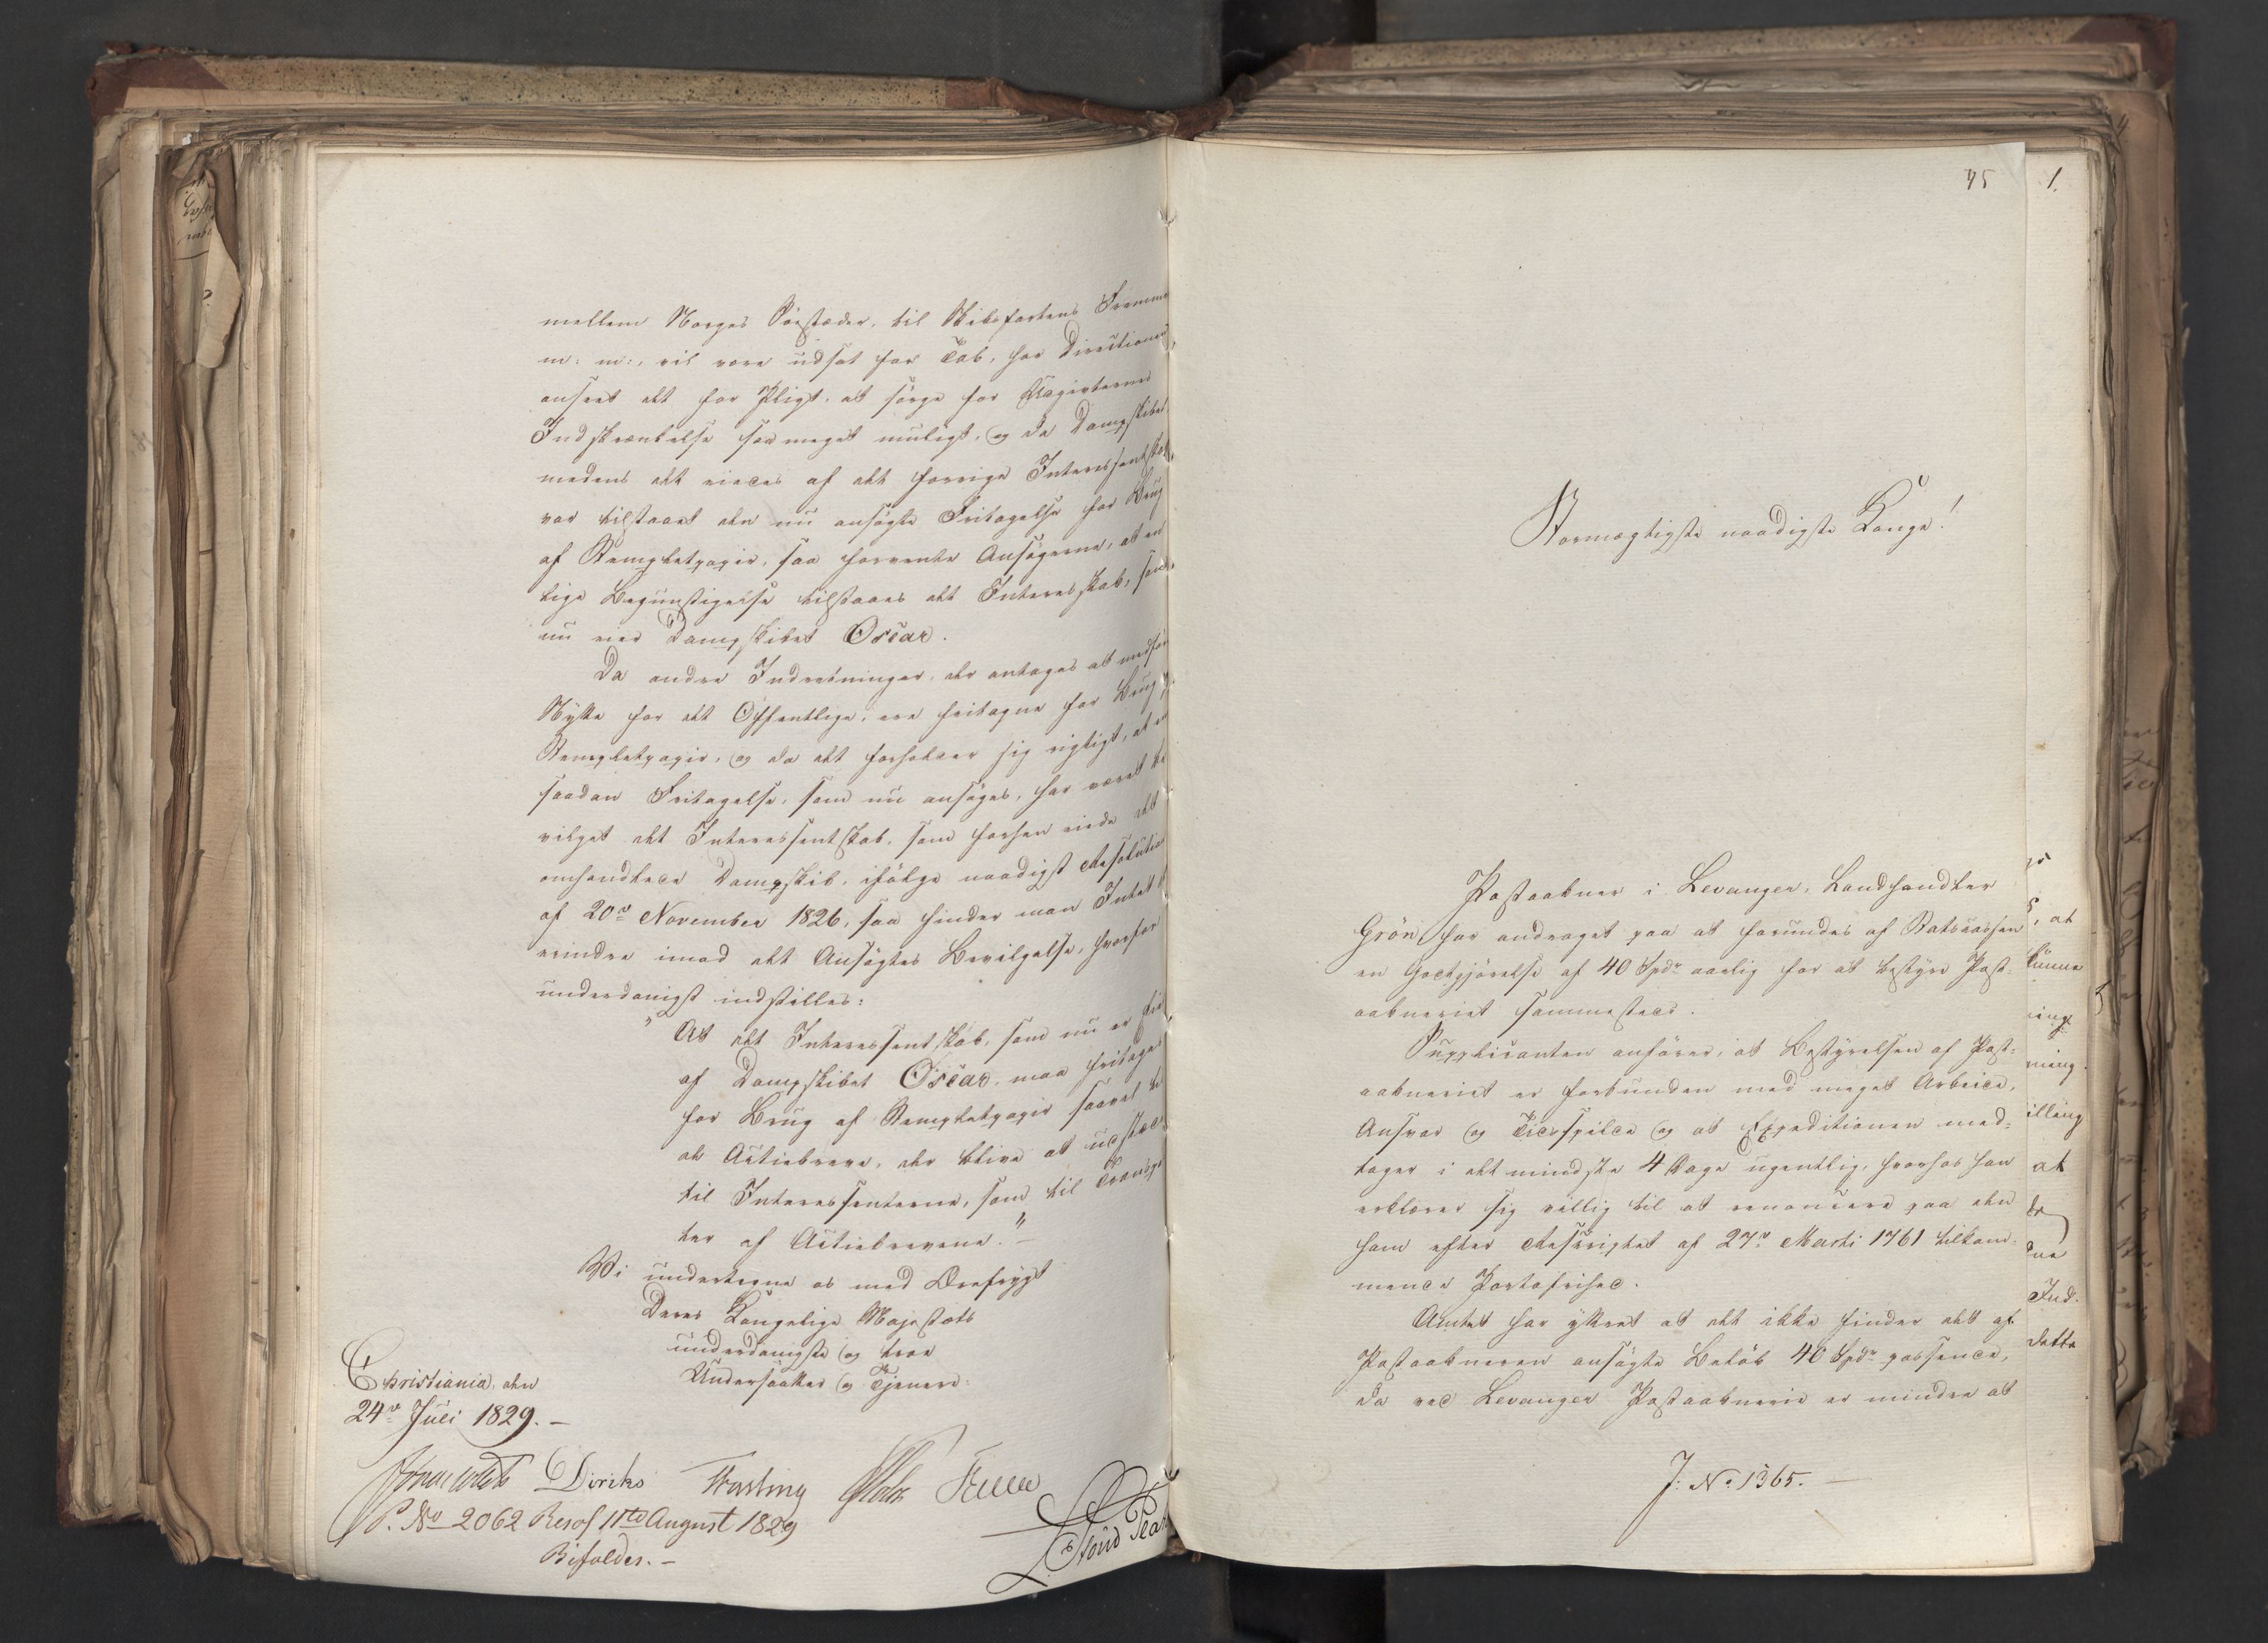 mellem Norges Søestæder, til Skibsfartens Fremme
m: m:, vil være udsat for Tab, har Directionen
anseet det for Pligt, at sørge for Udgivternes
Indskrænkelse saa meget muligt, og da Dampskibet,
medens det eiedes af det forrige Interessentskab,
var tilstaaet den nu ansøgte Fritagelse for Brug
af Stempletpapir, saa forvente Ansøgerne, at en
lige Begunstigelse tilstaaes det Interesskab, som
nu eier Dampskibet Oscar.
Da andre Indretninger, der antages at medføre
Nytte for det Offentlige, ere fritagne for Brug af
Stempletpapir, og da det forholder sig rigtigt, at en
saadan Fritagelse, som nu ansøges, har været be
vilget det Interessentskab, som forhen eiede det
omhandlede Dampskib, ifølge naadigst Resolution
af 20de November 1826, saa finder man Intet at
erindre imod det Ansøgtes Bevilgelse, hvorfor
underdanigst indstilles:
"At det Interessentskab, som nu er Eier
af Dampskibet Oscar, maa fritages
for Brug af Stempletpapir saavel til
de Actiebreve, der blive at udstæde
til Interessenterne, som til Transpor
ter af Actiebrevene."—
Vi undertegne os med Ærefrygt
Deres Kongelige Majestæts
underdanigste og troe
Undersaatter og Tjenere:
Christiania, den
24de Juli 1829. —
Diriks Fasting Holst
P. No 2062 Resol 11te August 1829
Bifaldes. —
45
1.
Stormægtigste naadigste Konge!
Postaabner i Levanger, Landhandler
Grön, har andraget paa at forundes af Statscassen
en Godtgjørelse af 40 Spdr aarlig for at bestyre Post=
aabneriet sammesteds.
Supplicanten anfører, at Bestyrelsen af Post=
aabneriet er forbunden med meget Arbeide,
Ansvar og Tidsspilde og at Expeditionen med=
tager i det mindste 4 Dage ugentlig, hvorhos han
erklærer sig villig til at renoncere paa den
ham efter Rescriptet af 27de Marti 1761 tilkom=
mende Portofrihed.
Amtet har yttret at det ikke finder det af
Postaabneren ansøgte Beløb 40 Spdr passende,
da ved Levanger Postaabnerie er mindre at
J: No 1365. —
, at
kunne
ning
illing
at
Ind.
dette